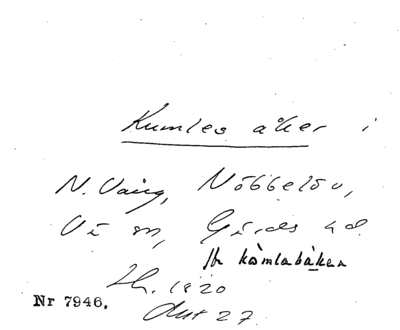 Kumles åker i
N. Vång, Nöbbelöv,
Vä sn, Gärds hd
kömlabåken
Lh. 1820
Akt 27
Nr 7946.